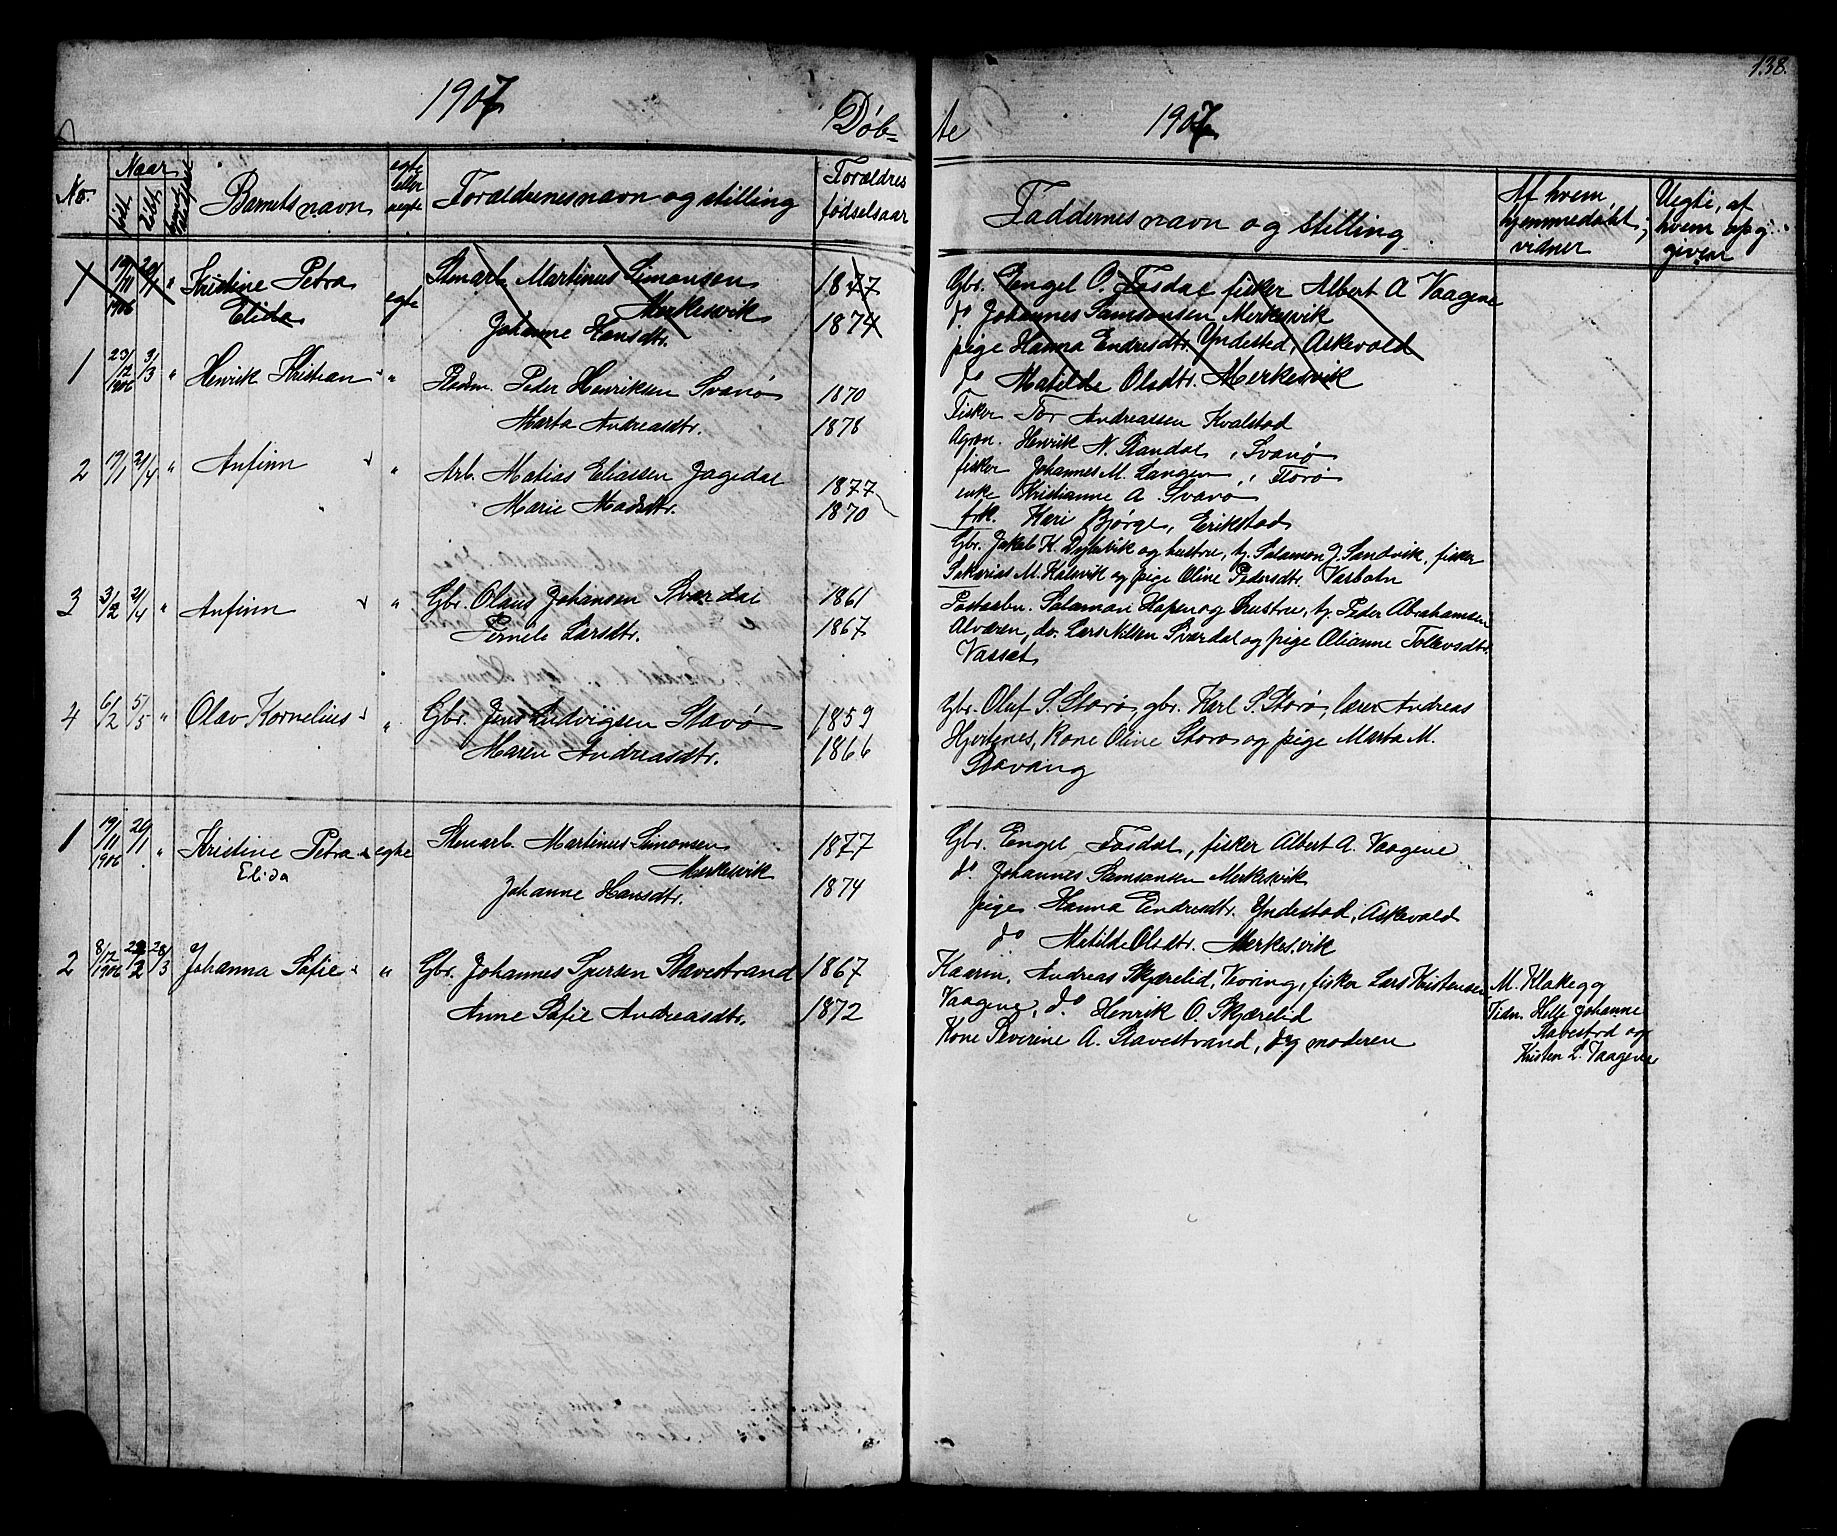 138.
1907 Døb= te 1907
No.
Naar
født
døbt
Barnets navn
egte eller uegte
Forældrenes navn og stilling
Forældres fødselsaar
Faddernes navn og stilling
Af hvem hjemmedøbt; vidner
Uegte, af hvem opgivet
1 19/11 1906 20/1 " Kristine Petra Elida egte
Stenarb. Martinus Simonsen Merkesvik 1877
Johanne Hansdtr. 1874
Gbr. Engel O. Fosdal, fisker Albert A Vaagene
do Johannes Samsonsen Merkesvik
pige Hanna Endresdtr. Yndestad, Askevold
do Matilde Olsdtr. Merkesvik
1 23/12 1906 3/3 " Henrik Kristian "
Pladsm. Peder Henriksen Svanø 1870
Marta Andreasdtr. 1878
Fisker Tor Andreassen Kvalstad
Agron. Henrik N. Standal, Svanø
fisker Johannes M. Langen, Florø
enke Kristianne A. Svanø
frk. Kari Bjørge, Erikstad
2 19/1 21/4 " Anfinn "
Arb. Matias Eliassen Jagedal 1877
Marie Madsdtr. 1870
Gbr. Jakob K. Dybevik og hustru, ty. Salamon J. Sandvik, fisker
Sakarias M. Kalsvik og pige Oline Pedersdtr. Varbotn
3 3/2 21/4 " Anfinn "
Gbr. Olaus Johansen Sværdal 1861
Pernele Larsdtr. 1867
Postaabn. Salamon Hopen og hustru, ty. Peder Abrahamsen
Alværen, do. Lars Nilsen Sværdal og pige Olianne Tollevsdtr.
Vasset
4 6/2 5/5 " Olav Kornelius "
Gbr. Jens Ludvigsen Stavø 1859
Maren Andreasdtr. 1866
Gbr. Oluf S. Storø, gbr. Karl S. Storø, lærer Andreas
Hjertenes, Kone Oline Storø og pige Marta M.
Stavang
1 19/11 1906 20/1 " Kristine Petra Elida egte
Stenarb. Martinus Simonsen Merkesvik 1877
Johanne Hansdtr. 1874
Gbr. Engel Fosdal, fisker Albert A. Vaagene
do Johannes Samsonsen Merkesvik
pige Hanna Endresdtr. Yndestad, Askevold
do Matilde Olsdtr. Merkesvik
2 8/12 1906 28/2 28/3 Johanna Sofie "
Gbr. Johannes Iversen Stavestrand 1867
Anne Sofie Andreasdtr. 1872
Andreas Skjærelid, Vevring, fisker Lars Kristensen
Vaagene, do. Henrik O. Skjærelid
Kone Severine A. Stavestrand, og moderen
M. Klakegg
Vidn. Helle Johanne
Stavestrd og
Kristen L. Vaagene